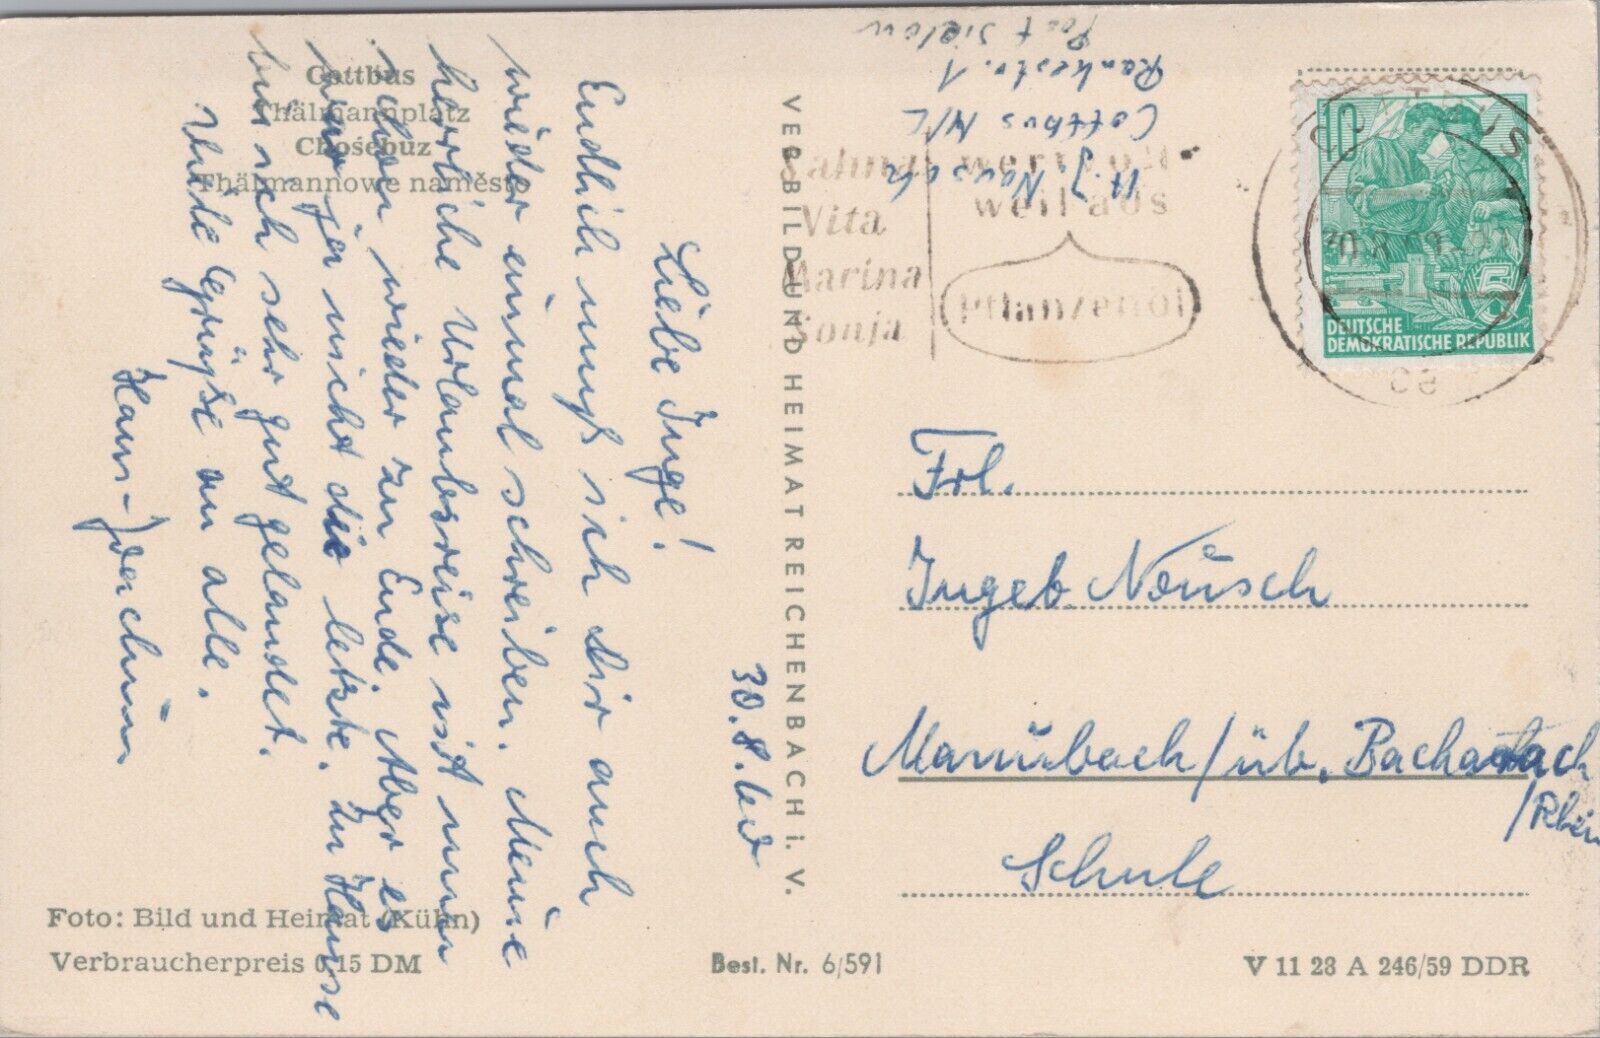 Cottbus
Thälmannplatz
Chośebuz
Thälmannowe naměsto
30.8.60
Liebe Inge!
Endlich muß ich Dir auch
wieder einmal schreiben. Meine
herrliche Urlaubsreise ist nun
schon wieder zu Ende. Aber es
war ja nicht die letzte. Zu Hause
bin ich sehr gut gelandet.
Viele Grüße an alle.
Hans-Joachim
Foto: Bild und Heimat (Kühn)
Verbraucherpreis 0,15 DM
Best. Nr. 6/591
VEB BILD UND HEIMAT REICHENBACH i. V.
H.J.
Cottbus N/L
Rankestr. 1
Post Sielow
Vita
Marina
Sonja
wertvoll
weil aus
Pflanzenöl
COTTBUS
ce
10
5
DEUTSCHE
DEMOKRATISCHE REPUBLIK
Frl.
Ingeb. Neusch
Manubach/üb. Bacharach
/Rhein
Schule
V 11 28 A 246/59 DDR